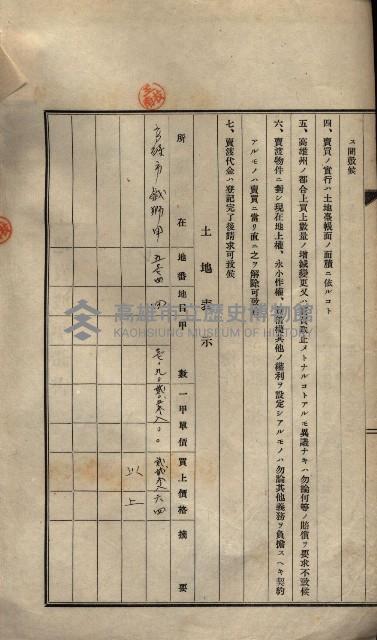 ス間敷候
四、賣買ノ實行ハ土地臺帳面ノ面積ニ依ルコト
五、高雄州ノ都合上買上數量ノ增減變更又ハ買取止メトナルコトアルモ異議ナキハ勿論何等ノ賠償ヲ要求不致候
六、賣渡物件ニ對シ現在地上權、永小作權、其他ノ權利ヲ設定シアルモノハ勿論其他義務ヲ負擔スヘキ契約
アルモノハ賣買ニ當リ直ニ之ヲ解除可致
七、賣渡代金ハ登記完了後請求可致候
土地表示
所在 地番 地目 甲數 一甲單價 買上價格 摘要
高雄市戲獅甲
以上
高雄市立歷史博物館
KAOHSIUNG MUSEUM OF HISTORY